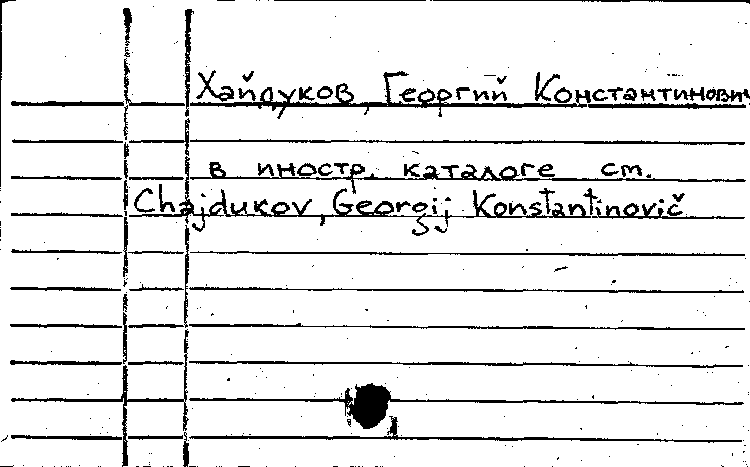 Хайдуков, Георгий Константинович
в иностр. каталоге ст.
Chajdukov, Georgij Konstantinovič